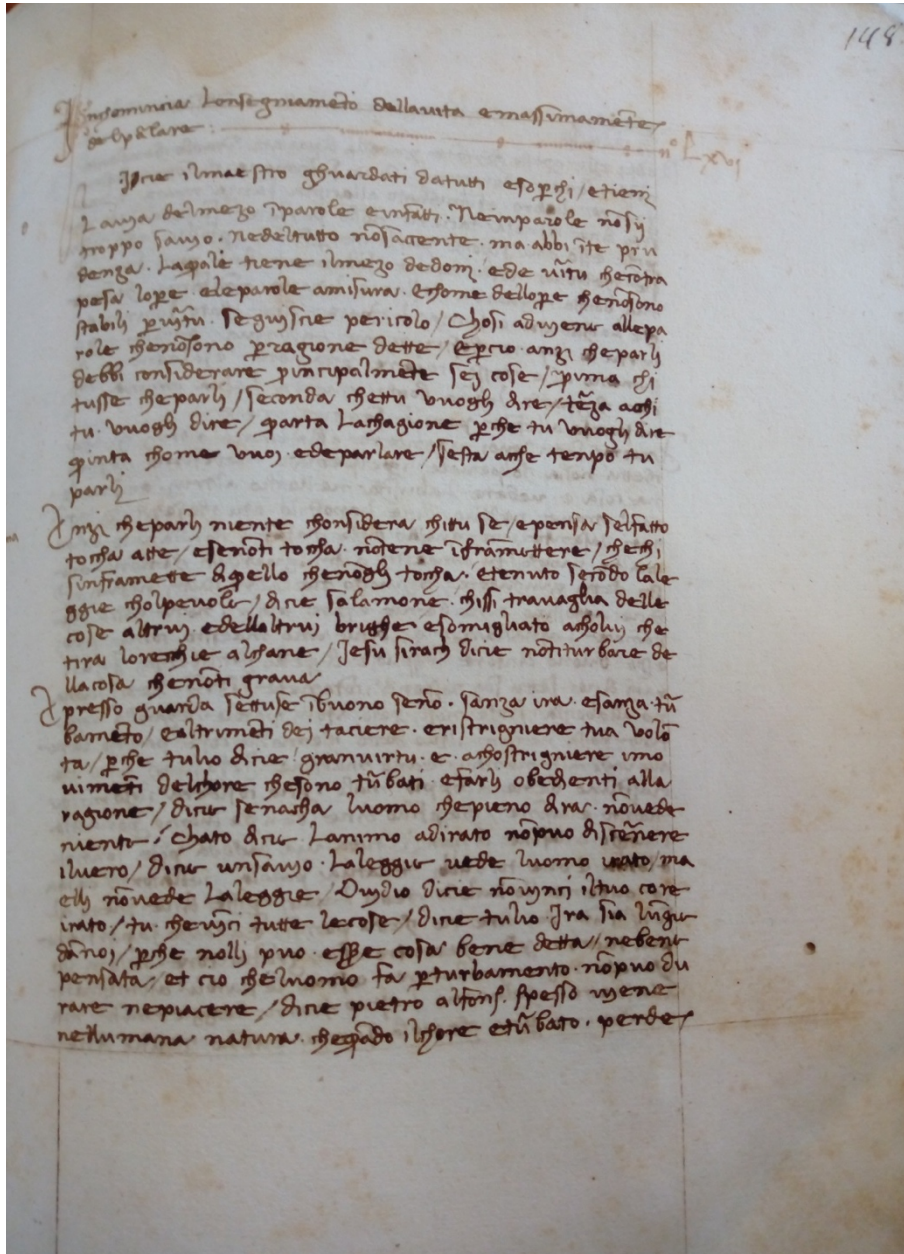 148
Inchomincia lonsegniamēto dellavita emassimamēte
delp̄lare n° Lxvi
Dicie ilmaestro ghuardati datutti esop̄chi / etieni
Lavia delmezo īparole einfatti. Neinparole nōsij
troppo savio. nedeltutto nōsaccente. ma abbi īte pru
denza. Laq̄ale tiene ilmezo dedoni. ede v̄itu checōtra
pesa lop̄e eleparole amisura. Echome dellop̄e chenōsono
stabili p̄vir̄tu. seguiscie pericolo / Chosi adviene allepa
role chenōsono p̄ragione dette / Ep̄cio anzi cheparli
debbi considerare p̄incipalmēte sei cose / p̄ima chi
tusse cheparli / seconda chettu vuogli dire / tēza achi
tu vuogli dire / q̄arta Lachagione p̄che tu vuogli dire
q̄inta chome vuoi edeparlare / sesta ache tenpo tu
parli
Anzi cheparli niente chonsidera chittu se / epensa selfatto
toccha atte / esenōti toccha. nōtene īframettere / chechi
sinframette diq̄ello chenōgli toccha. etenuto secōdo lale
ggie cholpevole / dicie salamone. chissi travaglia delle
cose altrui edellaltrui brighe esomigliato acholui che
tira lorecchie alchane / Jesu sirach dicie nōtiturbare de
llacosa chenōti grava
Apresso guarda settuse ībuono seno. sanza ira. esanza tū
bamēto / ealtrimēti dei taciere. eristrigniere tua volō
ta / p̄che tulio dicie granvirtu. e. achostrigniere imo
vimēti delchore chesono tūbati efarli obedienti alla
ragione / dicie senacha luomo chepieno dira. nōvede
niente / Chato dicie Lanimo adirato nōpuo discēnere
ilvero / dicie unsavio. Laleggie vede luomo irato / ma
elli nōvede Laleggie / Ovidio dicie nōvinci iltuo core
irato / tu chevīci tutte lecose / dicie tulio Ira sia lūgie
dānoi / p̄che nolli puo. ess̄e cosa bene detta / nebene
pensata / et cio cheluomo fa p̄turbamento. nōpuo du
rare nepiacere / dicie pietro alfons. spesso viene
nellumana natura. cheq̄ado ilchore etūbato. perde